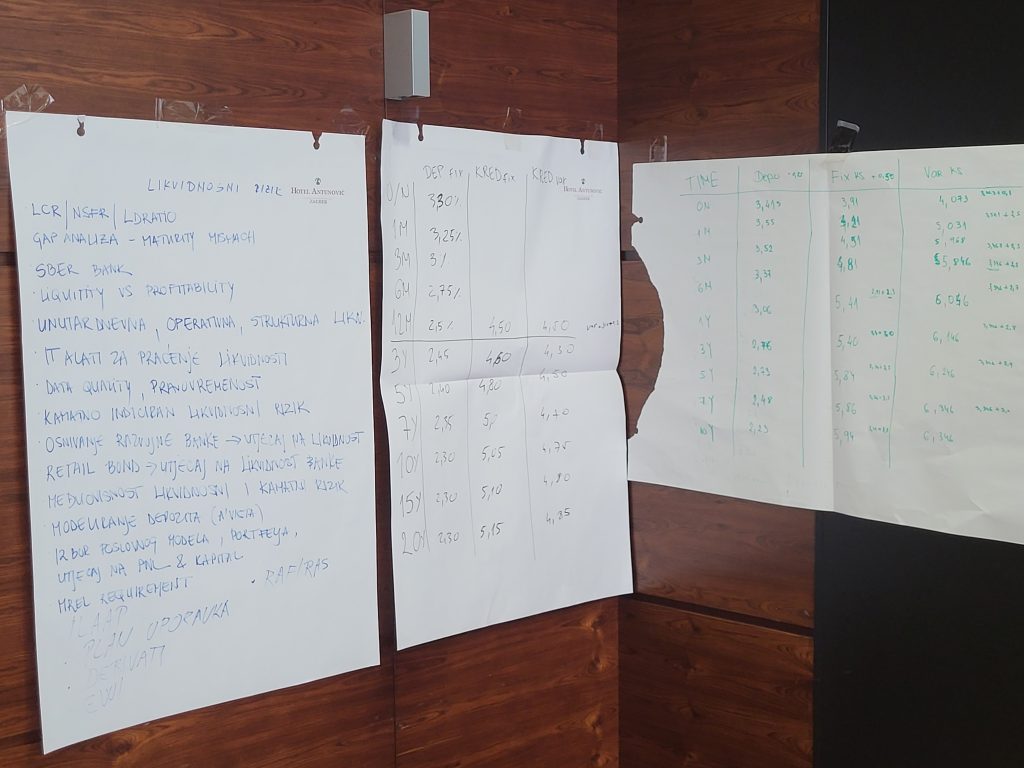 LIKVIDNOSNI RIZIK
HOTEL ANTUNOVIĆ
ZAGREB
LCR/NSFR/LDRATIO
GAP ANALIZA - MATURITY MISMACH
SBER BANK
LIQUITITY VS PROFITABILITY
UNUTARDNEVNA, OPERATIVNA, STRUKTURNA LIKV.
IT ALATI ZA PRAĆENJE LIKVIDNOSTI
DATA QUALITY, PRAVOVREMENOST
KAMATNO INDICIRAN LIKVIDNOSNI RIZIK
OSNIVANJE RAZVOJNE BANKE → UTJECAJ NA LIKVIDNOST
RETAIL BOND → UTJECAJ NA LIKVIDNOST BANKE
MEĐUOVISNOST LIKVIDNOSNI I KAMATNI RIZIK
MODELIRANJE DEPOZITA (A'VISTA)
IZBOR POSLOVNOG MODELA, PORTFELJA,
UTJECAJ NA PNL & KAPITAL
MREL REQUIREMENT
· RAF/RAS
ILAAP
· PLAN OPORAVKA
DERIVATI
DEP FIX KRED FIX KRED VAR
HOTEL ANTUNOVIĆ
ZAGREB
O/N 3,30%
1M 3,25%
3M 3%
6M 2,75%
12M 2,5% 4,50 4,50
3Y 2,45 4,60 4,30
5Y 2,40 4,80 4,50
7Y 2,35 4,70
10Y 2,30 5,05 4,75
15Y 2,30 5,10 4,80
20Y 2,30 5,15 4,85
TIME Depo FIX KS + 0,50 VAR KS
ON 3,415 3,91 4,073
1M 3,55 5,031
3M 3,52 4,51
6M 3,37 4,81 5,846
1Y 3,06 5,41 6,046
3Y 2,76 5,40 6,146
5Y 2,73 5,84 6,246
7Y 2,48 5,86 6,346
10Y 2,23 5,94 6,346